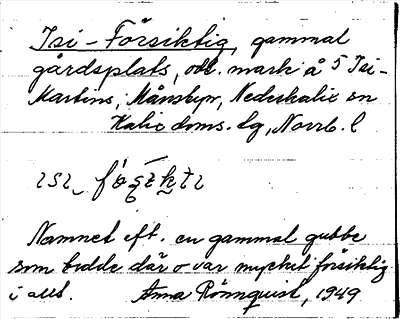 Isi-Försiktig, gammal
gårdsplats, odl. mark å 5 Isi-
Martins, Månsbyn, Nederkalix sn
Kalix doms. lg, Norrb. l
Namnet eft. en gammal gubbe
som bodde där o var mycket försiktig
i allt. Anna Rönnquist, 1949